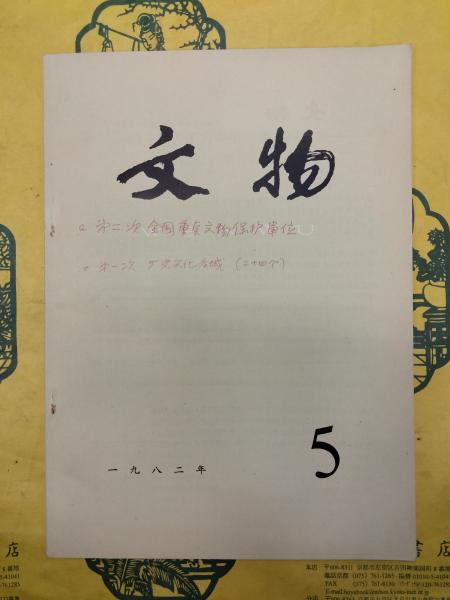 文物
第二次 全国重点文物保护單位
第一次 历史文化名城 (二十四个)
一九八二年
5
店
書店
8番地
5-41041
-761285
本店 〒606-8311 京都市左京区吉田神楽岡町8番地
電話京都 (075) 761-1285 振替 01050-5-41041
FAX (075) 761-8150